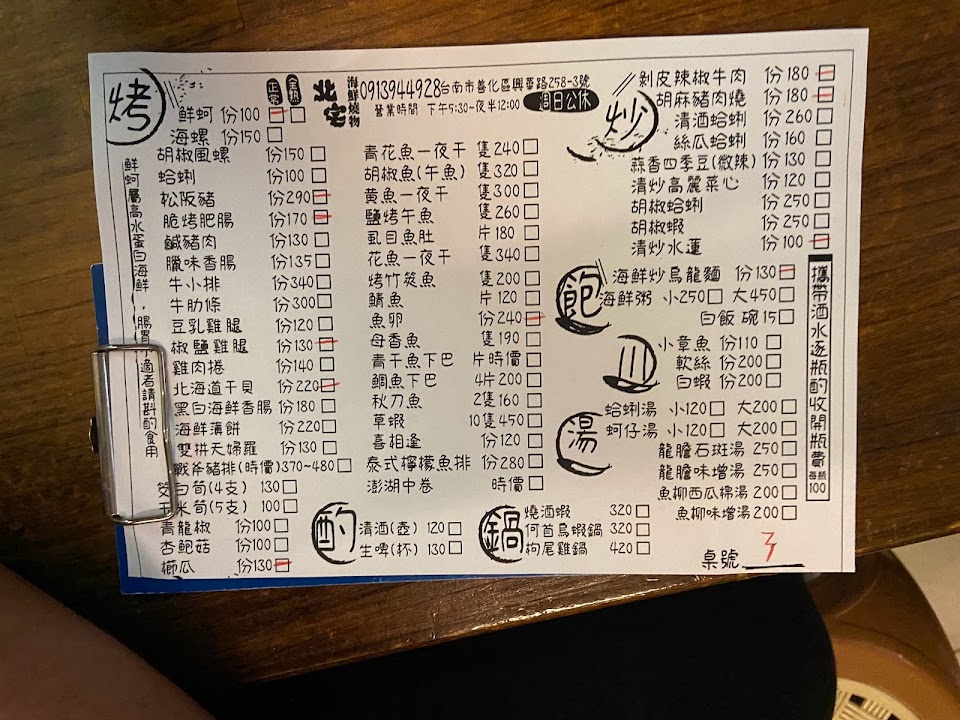 烤
正常 全熟
鮮蚵 份100
海螺 份150
胡椒風螺 份150
蛤蜊 份100
松阪豬 份290
脆烤肥腸 份170
鹹豬肉 份130
臘味香腸 份135
牛小排 份340
牛肋條 份300
豆乳雞腿 份120
椒鹽雞腿 份130
雞肉捲 份140
北海道干貝 份220
黑白海鮮香腸 份180
海鮮薄餅 份220
雙拼天婦羅 份130
戰斧豬排(時價)370~480
筊白筍(4支) 130
玉米筍(5支) 100
青龍椒 份100
杏鮑菇 份100
櫛瓜 份130
鮮蚵屬高水蛋白海鮮,腸胃不適者請斟酌食用
北宅
海鮮燒物
0913944928台南市善化區興華路258-3號
營業時間 下午5:30~夜半12:00 週日公休
青花魚一夜干 隻240
胡椒魚(午魚) 隻320
黃魚一夜干 隻300
鹽烤午魚 隻260
虱目魚肚 片180
花魚一夜干 隻340
烤竹筴魚 隻200
鯖魚 片120
魚卵 份240
母香魚 隻190
青干魚下巴 片時價
鯛魚下巴 4片200
秋刀魚 2隻160
草蝦 10隻450
喜相逢 份120
泰式檸檬魚排 份280
澎湖中卷 時價
酌
清酒(壺) 120
生啤(杯) 130
鍋
燒酒蝦 320
何首烏蝦鍋 320
枸尾雞鍋 420
炒
剝皮辣椒牛肉 份180
胡麻豬肉燒 份180
清酒蛤蜊 份260
絲瓜蛤蜊 份160
蒜香四季豆(微辣) 份130
清炒高麗菜心 份120
胡椒蛤蜊 份250
胡椒蝦 份250
清炒水蓮 份100
飽
海鮮炒烏龍麵 份130
海鮮粥 小250 大450
白飯 碗15
川
小章魚 份110
軟絲 份200
白蝦 份200
湯
蛤蜊湯 小120 大200
蚵仔湯 小120 大200
龍膽石斑湯 250
龍膽味增湯 250
魚柳西瓜棉湯 200
魚柳味增湯 200
攜帶酒水逐瓶酌收開瓶費每瓶100
桌號 3